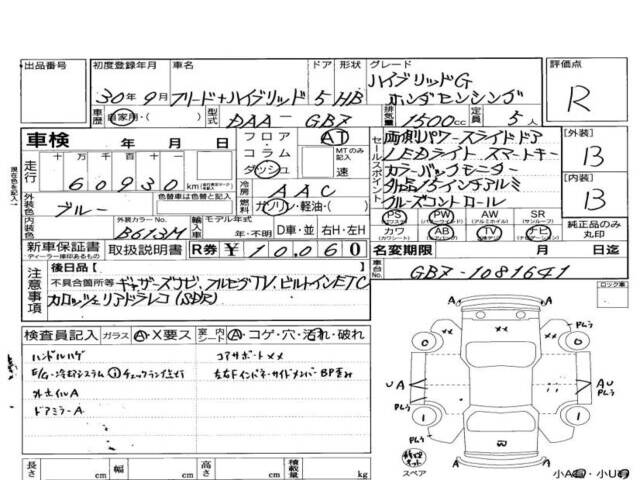 出品番号 初度登録年月 車名 ドア 形状 グレード 評価点
30年9月 フリード+ハイブリッド 5 HB ハイブリッドG ホンダセンシング R
車歴 自家用・( ) 型式 DAA-GB7 排気量 1500cc 定員 5人
車検 年 月 日 フロア・コラム・ダッシュ AT MTのみ記入 速
走行 十万千百十 60930 km
冷房 AAC
燃料 ガソリン・軽油・( )
セールスポイント
両側パワースライドドア
LEDライト スマートキー
カラーバックモニター
外品15インチアルミ
クルーズコントロール
[外装] B
[内装] B
外装色 ブルー 外装カラーNo. B613M
内装色 輸入車 モデル年式 年・不明 D車・並 右H・左H
PS PW AW SR
カワ AB TV ナビ 純正品のみ丸印
新車保証書 ディーラー捺印あるもの 取扱説明書 R券 ¥10,060
名変期限 月 日迄
車台No. GB7-1081641
注意事項 後日品( )
不具合箇所等 ギャザーズナビ、フルセグTV、ビルトインETC
カロッツェリアドラレコ(SDR)
検査員記入 ガラス A・X要ス 室内シート A・コゲ・穴・汚れ・破れ
ハンドルハゲ コアサポート××
E/G・冷却システム ①チェックランプ点灯 左右Fインドネ・サイドメンバーBP歪み
外ホイルA
ドアミラーA
ロック車
長さ cm 幅 cm 高さ cm 積載量 kg
スペア
小A・小U
現在色を記入→